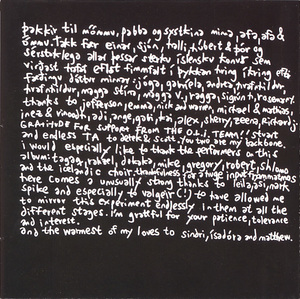 þakkir til mömmu, pabba og systkina minna, afa, afa &
ömmu. takk fær einar, sjón, halli, hőbert & þór og
sérstaklega allar þessar sterku íslensku konur sem
virðast tófas eflst fimmfalt í þykkan hring kring eftir
dóttir minnar: jóga, gabríela, andra, hrafnhildur,
hrafnhildur, magga stína, magga, ragga, sigrún, rosemary
thanks to jefferson, jemma, nick and warren, michel & mathias,
inez & vinoodh, adi, ange, gabi, tra, alex, sherry, zeena, richard j.
GRATITUDE FOR SUPPORT FROM THE O.L.I. TEAM!! stuart
and endless TA to derek & scott. you two are my backbone.
i would especially like to thank the performers on this
album: tagaq, rahzel, dokaka, mike, gregory, robert, shlomo
and the icelandic choir. thankfulness for a huge input from
here comes a unusually strong thanks to leila, asi, mark
spike and especially to valgeir (!) to have allowed me
to mirror this experiment endlessly in them at all the
different stages. i'm grateful for your patience, tolerance
and interest.
and the warmest of my loves to sindri, ísadóra and matthew.